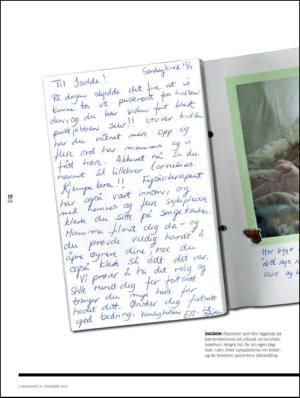 Til Isolde!
Søndag kveld 15/4
På dagen skjedde det fine at vi
kunne ta vt pusterøret fra halsen
din, og du har fort klart
puste jobben selv!! Utover kvelden
har du våknet mer opp og
flere ord har mamma og vi
fått høre. Akkurat nå sa du
navnet til lillebror Cornelius.
Kjempe bra!! Fysioterapeut
har også vært innom, og
med hennes og flere sykepleiere
klarte du sitte på senge kanten.
Mamma filmet deg da - og
du prøvde veldig hardt å
åpne øynene dine, noe du
også klarte. Så vidt det var.
Vi prøver å ha det rolig og
stille rundt deg for fortsatt
trenger du mye hvile mot
dittet. Ønsker deg fortsatt
god bedring. Vennlig hilsen
DAGBOK: Pasienter som blir liggende på
barneintensiven på Ullevål universitets-
sykehus i lengre tid, får sin egen dag-
bok. I den limer sykepleierne inn bilder
og de forteller pasientens behandling.
A-MAGASINET 21. DESEMBER 2012